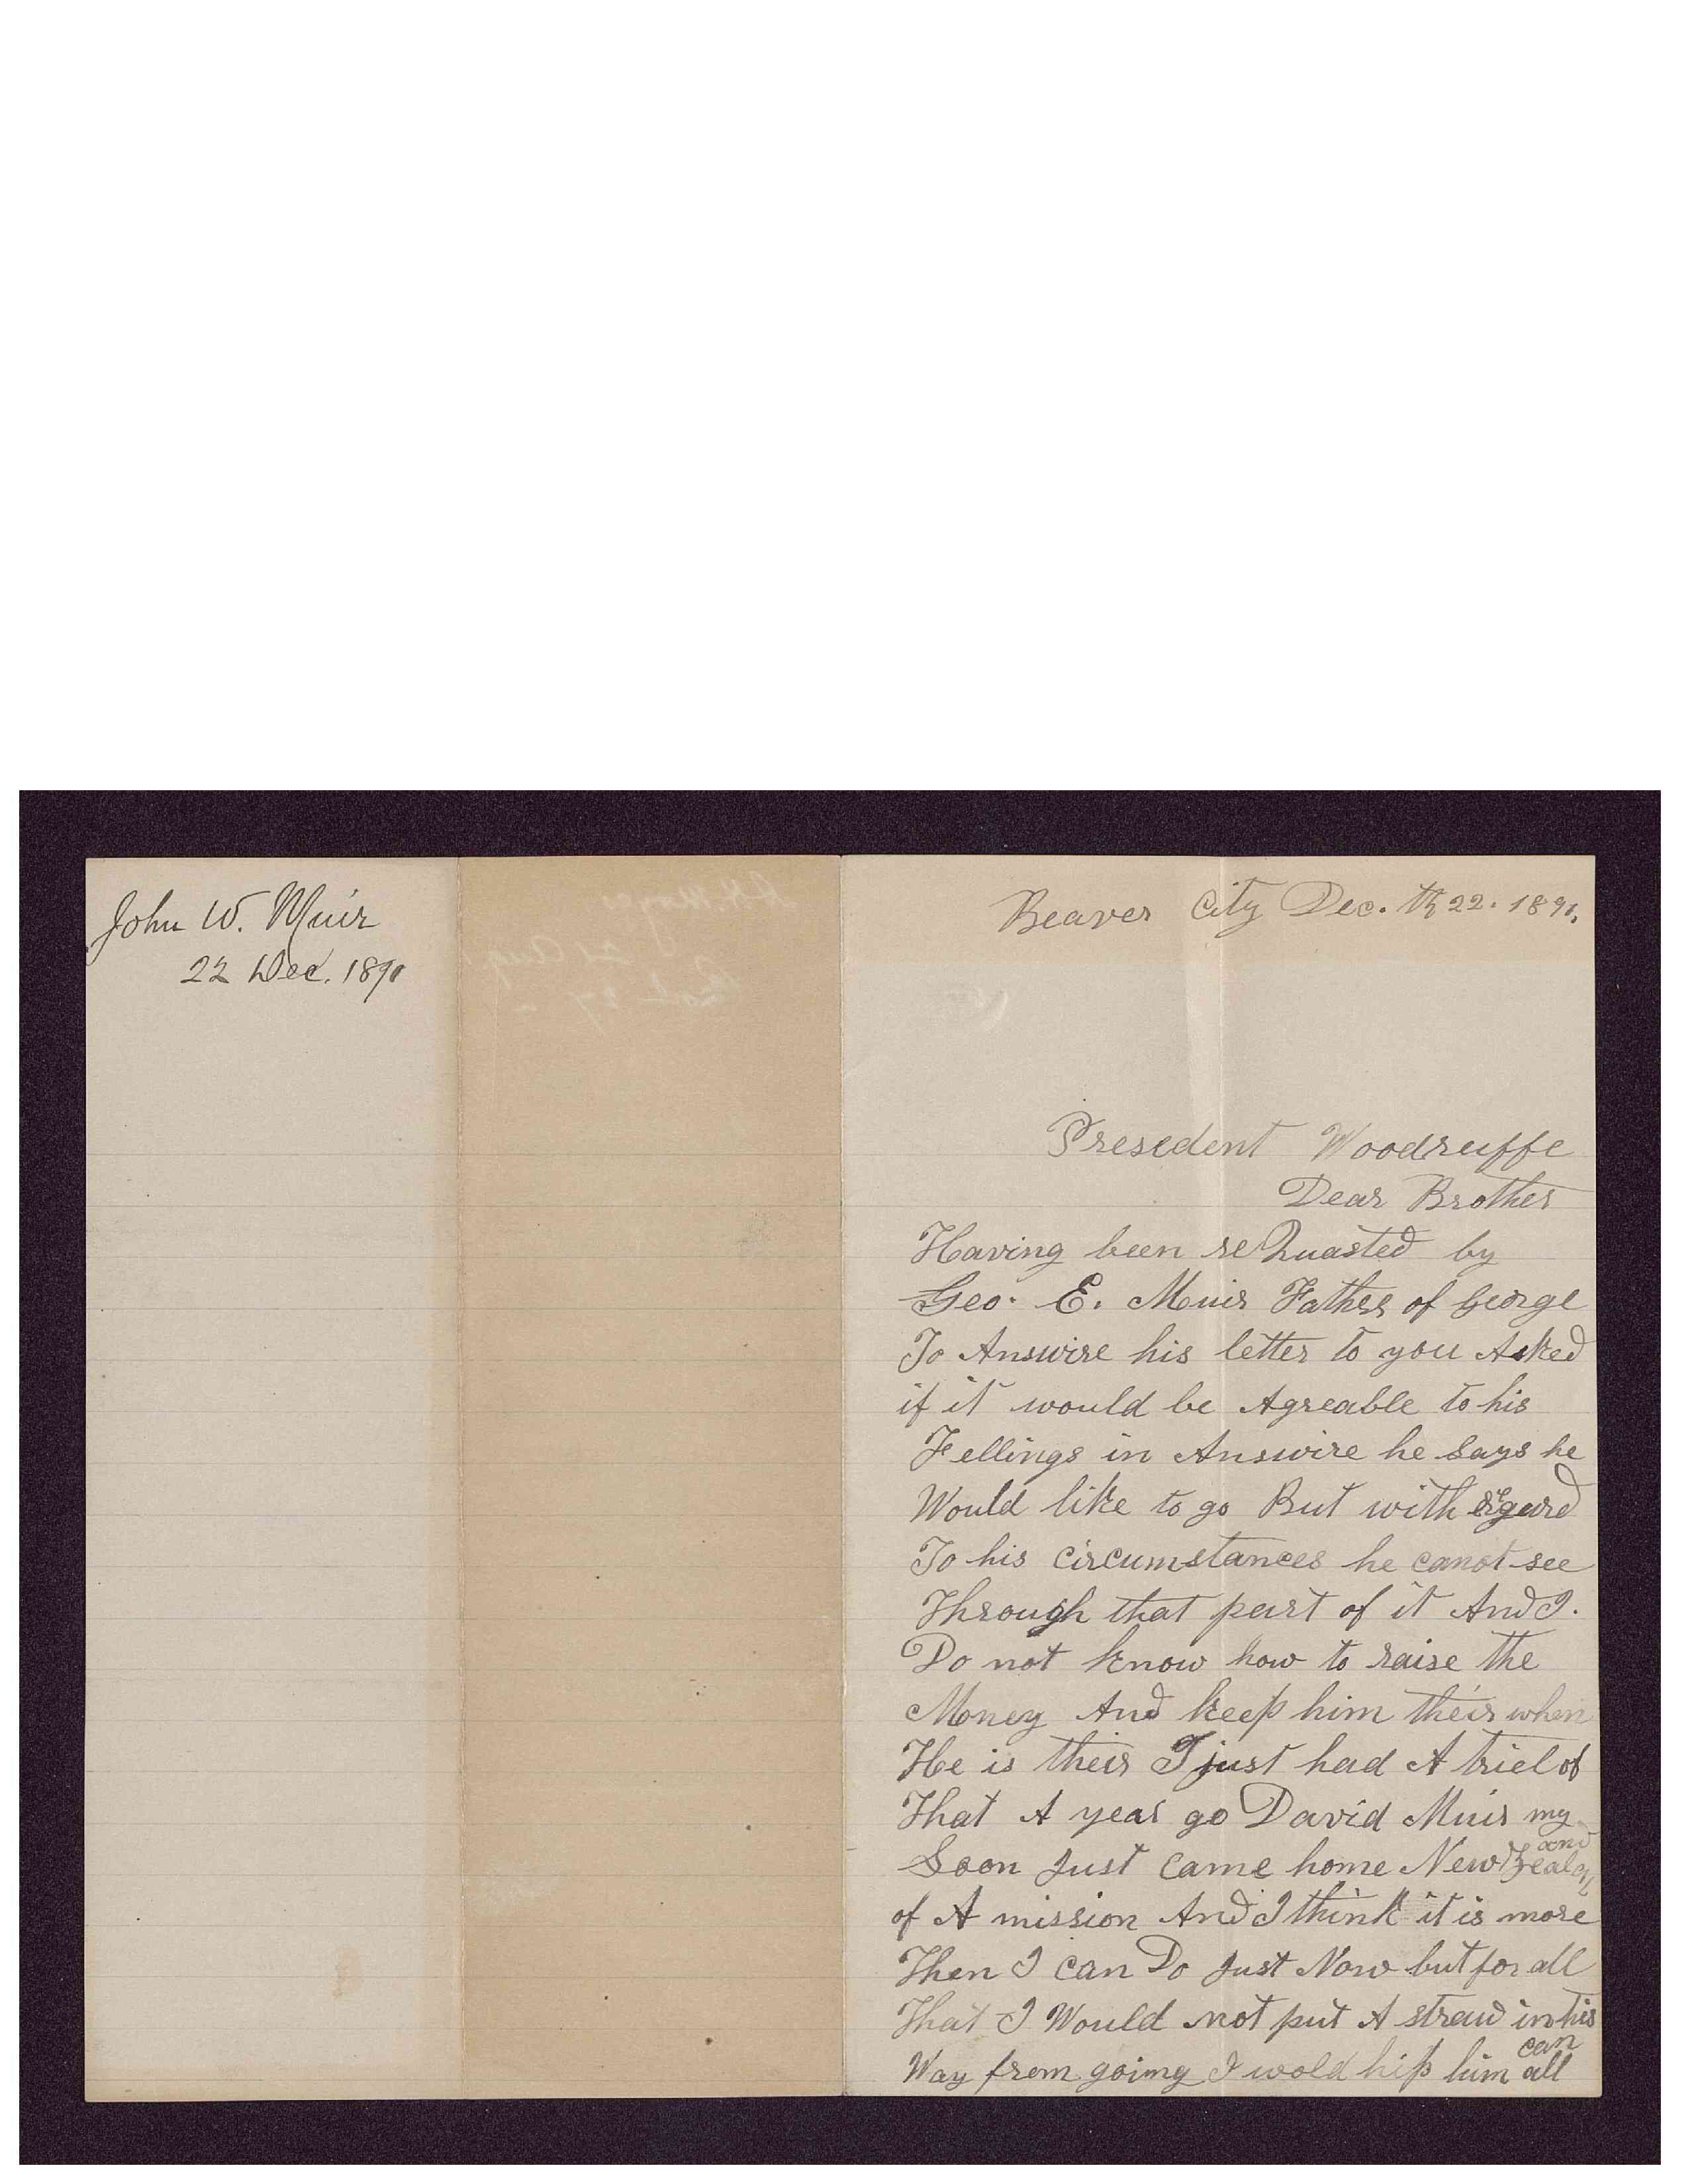 John W. Muir
22 Dec. 1890
Beaver City Dec. th 22. 1890.
Presedent Woodruffe
Dear Brother
Having been reQuasted by
Geo. E. Muir Father of George
To Answire his letter to you Asked
if it would be Agreable to his
Fellings in Answire he says he
Would like to go But with regard
To his circumstances he canot see
Through that part of it And I.
Do not know how to raise the
Money And keep him their when
He is their I just had A triel of
That A year go David Muir my
Soon Just came home New Zealand
of A mission And I think it is more
Then I can Do Just Now but for all
That I Would not put A straw in his
Way from going I wold hip him all can